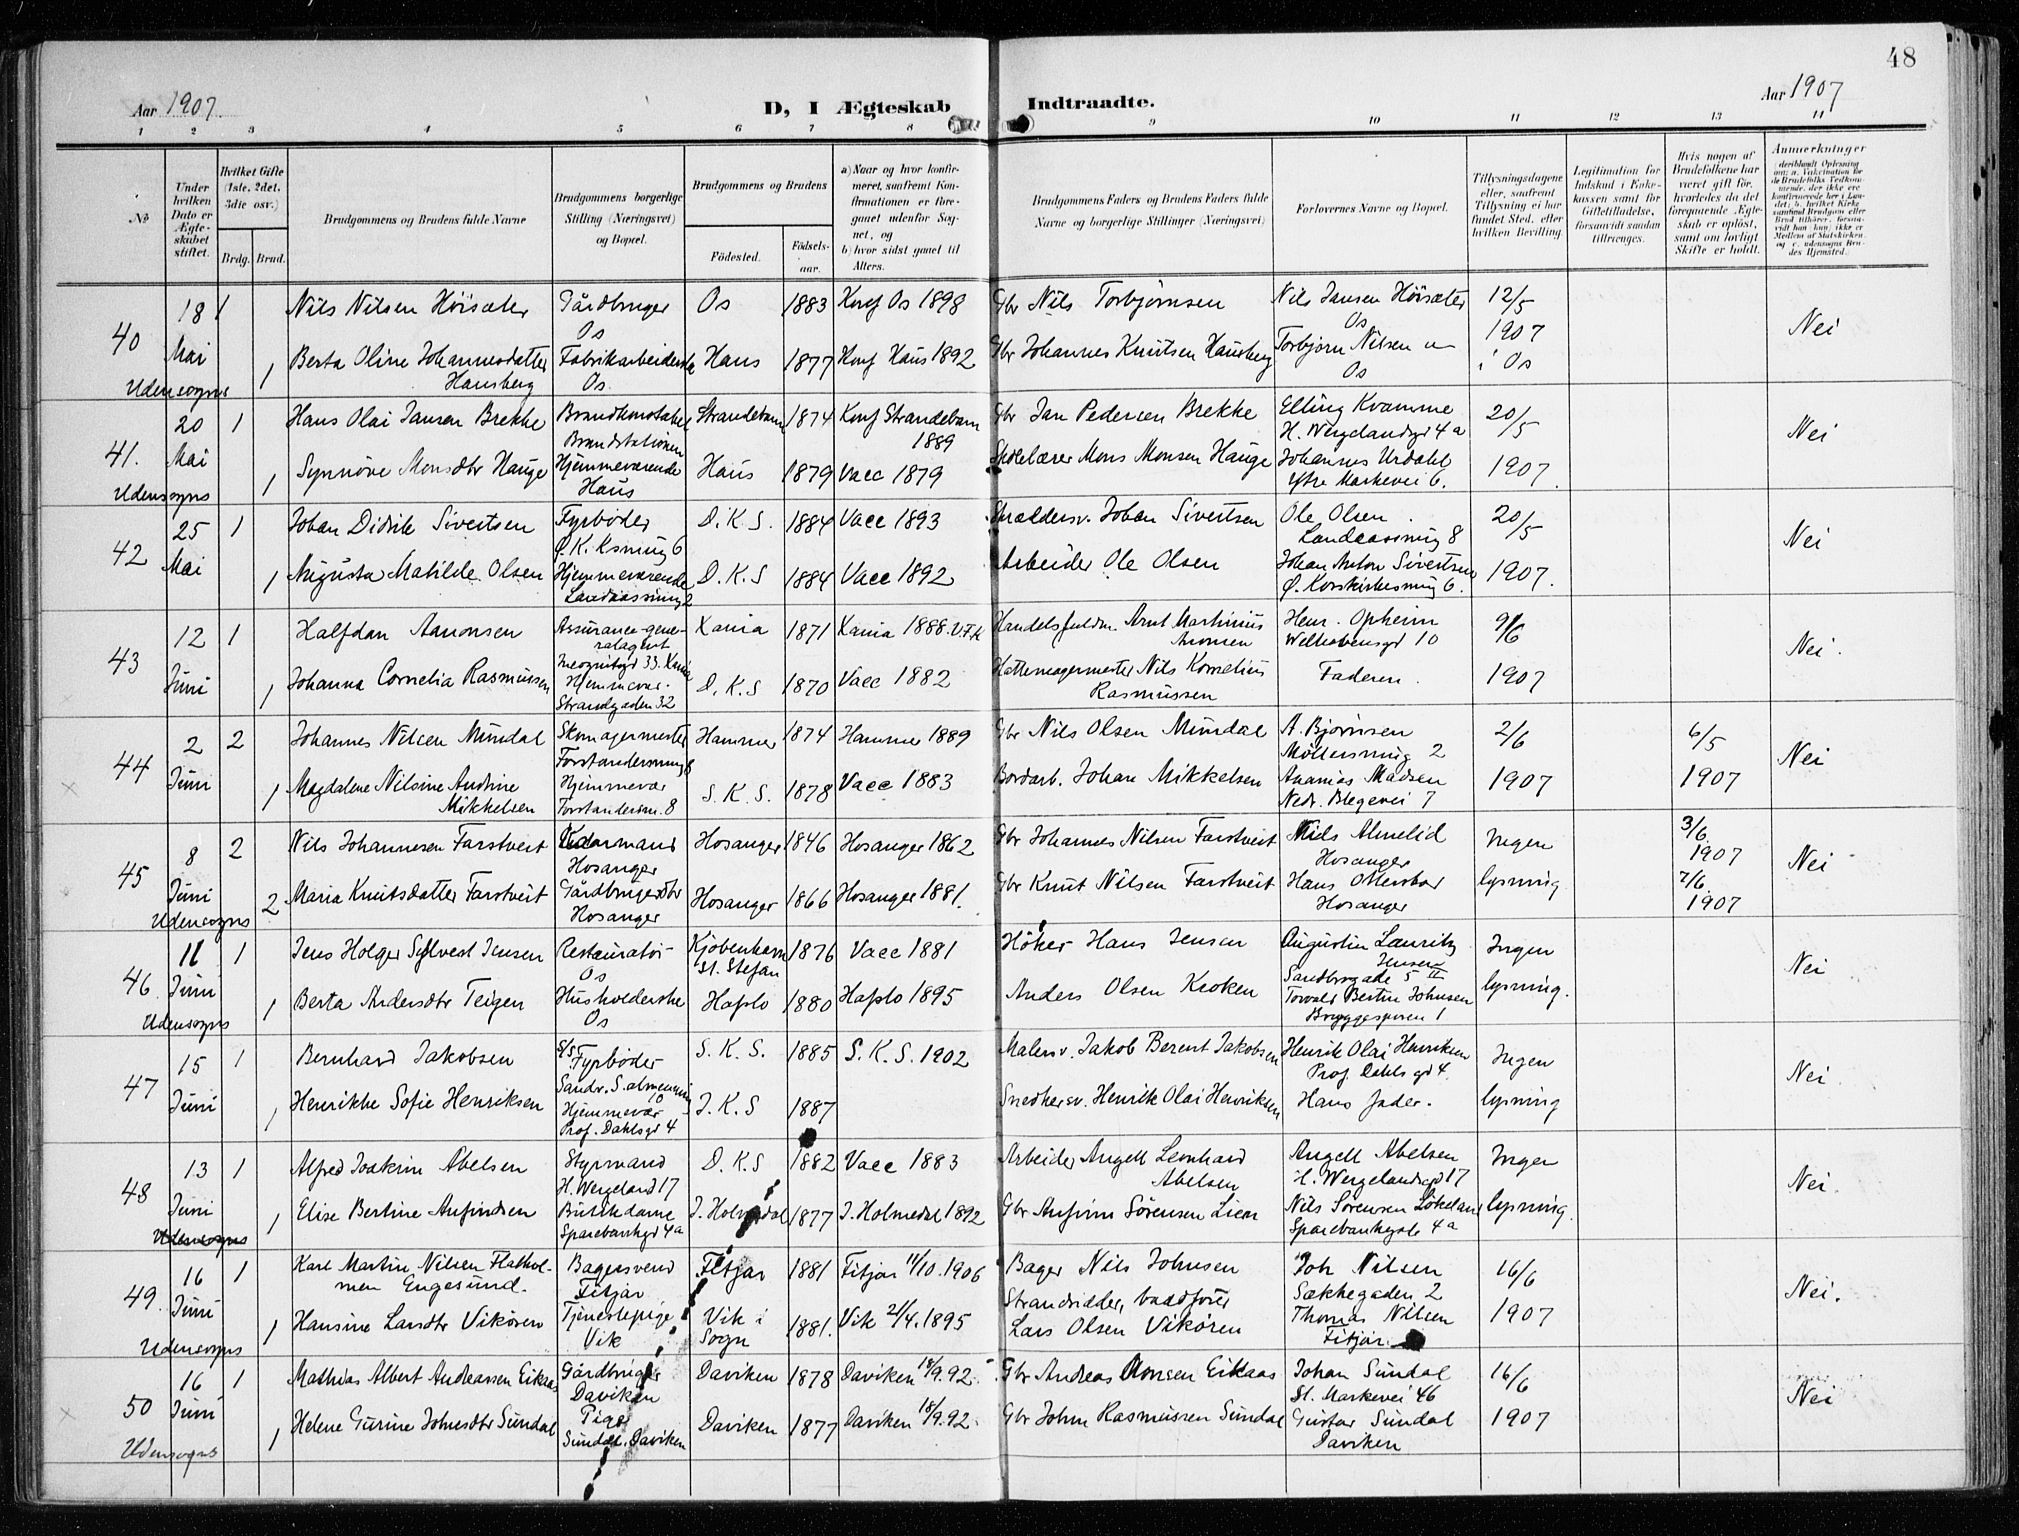 48
Aar 1907.
D, I Ægteskab Indtraadte.
Aar 1907
1 2 3 4 5 6 7 8 9 10 11 12 13 14
No
Under hvilken Dato er Ægteskabet stiftet.
Hvilket Gifte (1ste, 2det, 3die osv.)
Brdg. Brud.
Brudgommens og Brudens fulde Navne
Brudgommens borgerlige Stilling (Næringsvei) og Bopæl.
Brudgommens og Brudens
Födested.
Födsels-aar.
a) Naar og hvor konfirmeret, saafremt Konfirmationen er foregaaet udenför Sognet, og
b) hvor sidst gaaet til Alters.
Brudgommens Faders og Brudens Faders fulde Navne og borgerlige Stillinger (Næringsvei)
Forlovernes Navne og Bopæl.
Tillysningsdagene eller, saafremt Tillysning ei har fundet Sted, efter hvilken Bevilling.
Legitimation for Indskud i Enkekassen samt for Giftetilladelse, forsaavidt saadan tiltrænges.
Hvis nogen af Brudefolkene har været gift för, hvorledes da det foregaaende Ægteskab er oplöst, samt om lovligt Skifte er holdt.
Anmerkninger
40 18 1 Nils Nilsen Höisæter Gårdbruger Os 1883 Konf Os 1898 Gbr Nils Torbjørnsen Nils Jansen Höisæter 12/5
Os Os 1907 Nei
Mai 1 Berta Oline Johannesdatter Fabrikarbeiderske Haus 1877 Konf Haus 1892 Gbr Johannes Knutsen Hausberg Torbjørn Nilsen
Udensogns Hausberg Os. Os i Os
41. 20 1 Hans Olai Jansen Brekke Brandkonstabel Strandebarm 1874 Konf Strandebarm 1889 Gbr Jan Pedersen Brekke Elling Kvamme 20/5
Brandstationen H. Wergelandsgd 4a Nei
Mai 1 Synnöve Monsdtr Hauge Hjemmeværende Haus 1879 Vacc 1879 Skolelærer Mons Monsen Hauge Johannes Urdahl 1907.
Udensogns Haus Ytre Markevei 6.
42 25 1 Johan Didrik Sivertsen Fyrbøder D. K. S. 1884 Vacc 1893 Johan Sivertsen Ole Olsen 20/5
8 Nei
Mai 1 Augusta Matilde Olsen Hjemmeværende D. K. S 1884 Vacc 1892 Arbeider Ole Olsen Johan Anton Sivertsen 1907.
Ø. Korskirkesmug 6.
43 12 1 Halfdan Aaronsen Assurance-generalagent Xania 1871 Xania 1888. Arnt Martinius Henr. Opheim 9/6
33. Xania Aronsen Welhavensgd 10 Nei.
Juni 1 Johanna Cornelia Rasmussen Hjemmevær. D. K. S 1870 Vacc 1882 Hattemagermester Nils Kornelius Faderen. 1907
Strandgaden 32 Rasmussen
44 2 2 Johannes Nilsen Mundal Skomagermester Hammer 1874 Hammer 1889 Gbr Nils Olsen Mundal A. Bjørnsen 2/6 6/5
Forstandersmug 8 Möllersmug 2 Nei
Juni 1 Magdalene Nilsine Andrine Hjemmevær S. K. S. 1878 Vacc 1883 Bordarb. Johan Mikkelsen Ananias Madsen 1907 1907
Mikkelsen Forstandersm. 8 Nedr. Blegevei 7
45 8 2 Nils Johannesen Farstveit Hosanger 1846 Hosanger 1862 Gbr Johannes Nilsen Farstveit Niels Almelid Ingen 3/6 1907
Hosanger Hosanger Nei
Juni 2 Maria Knutsdatter Farstveit Gårdbrugerdtr Hosanger 1866 Hosanger 1881. Gbr Knut Nilsen Farstveit Hans lysning. 7/6. 1907
Udensogns Hosanger Hosanger
46. 11 1 Jens Holger Sylvest Jensen Restauratør Kjøbenhavn 1876 Vacc 1881 Höker Hans Jensen Augustin Lauritz Jensen Ingen
Os St. Stefan 5 II Nei
Juni 1 Berta Andersdtr Teigen Husholderske Hafslo 1880 Hafslo 1895 Anders Olsen Kroken Torvald Bertin Johnsen lysning.
Udensogns Os 1
47 15 1 Bernhard Jakobsen Fyrbøder S. K. S. 1885 S. K. S. 1902 Malersv. Jakob Berent Jakobsen Henrik Olai Henriksen Ingen
10 Prof. Dahlsgd 4. Nei.
Juni 1 Henrikke Sofie Henriksen Hjemmevær J. K. S 1887 Snedkersv. Henrik Olai Henriksen Hans fader. lysning
Prof. Dahlsgd 4
48 13 1 Alfred Joakim Abelsen Styrmand D. K. S 1882 Vacc 1883 Arbeider Angell Leonhard Angell Abelsen Ingen
H. Wergeland 17 Abelsen H. Wergelandsgd 17 Nei.
Juni 1 Elise Bertine Anfindsen Butikdame I. Holmedal 1877 I. Holmedal 1892 Gbr Anfinn Sörensen Lien Nils Sörensen Lökeland lysning.
Udensogns Sparebankgd 4a Sparebankgade 4a
49. 16 1 Karl Martin Nilsen Flatholmen Engesund. Bagersvend Fitjar 1881 Fitjar 11/10. 1906 Bager Nils Johnsen Joh Nilsen 16/6
Fitjar Sækkegaden 2 Nei.
Juni 1 Hansine Larsdtr Vikören Tjenestepige Vik i Sogn 1881. Vik 21/4. 1895 Strandsidder, Lars Olsen Vikören Thomas Nilsen 1907
Udensogns Vik Fitjar.
50 16 1 Mathias Albert Andreassen Eikaas Gårdbruger Daviken 1878 Daviken 18/9. 92. Gbr Andreas Monsen Eikaas Johan Sundal 16/6
Daviken St. Markevei 46 Nei
Juni 1 Helene Gurine Johnsdtr Sundal Pige Daviken 1877 Daviken 18/9. 92. Gbr John Rasmussen Sundal Gustav Sundal 1907
Udensogns Sundal. Daviken Daviken